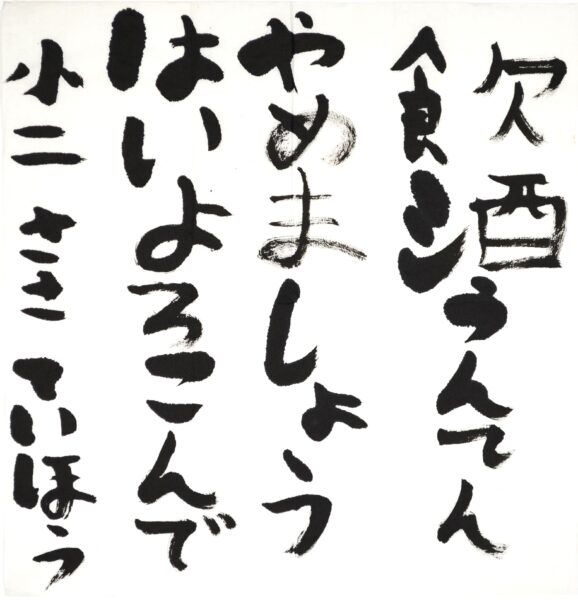 飲酒うんてん
やめましょう
はいよろこんで
小二 ささ ていほう